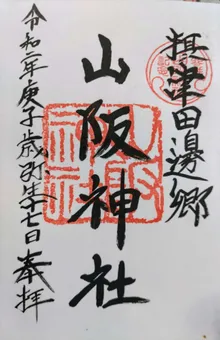 摂津田邊郷
山阪神社
令和二年庚子歳弥生十七日奉拝